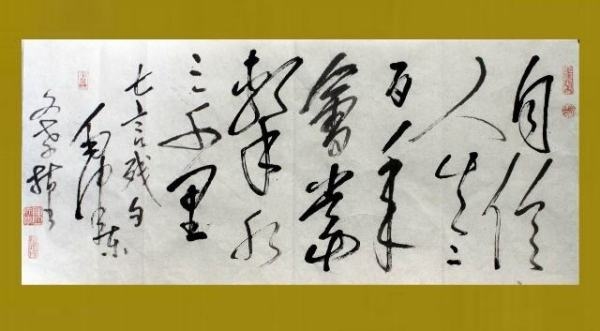 自信
人生二
百年
會當
擊水
三千里
七言残句
毛澤東